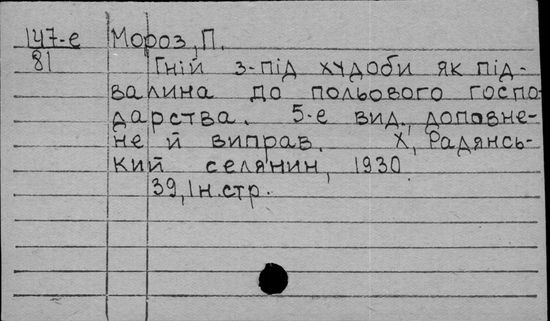 147-е Мороз, П.
81 Гній з-під худоби як під-
валина до польового госпо
дарства. 5-е вид, доповне-
не й виправ. Х, Радянсь-
кий селянин, 1930.
39, Ін.стр.